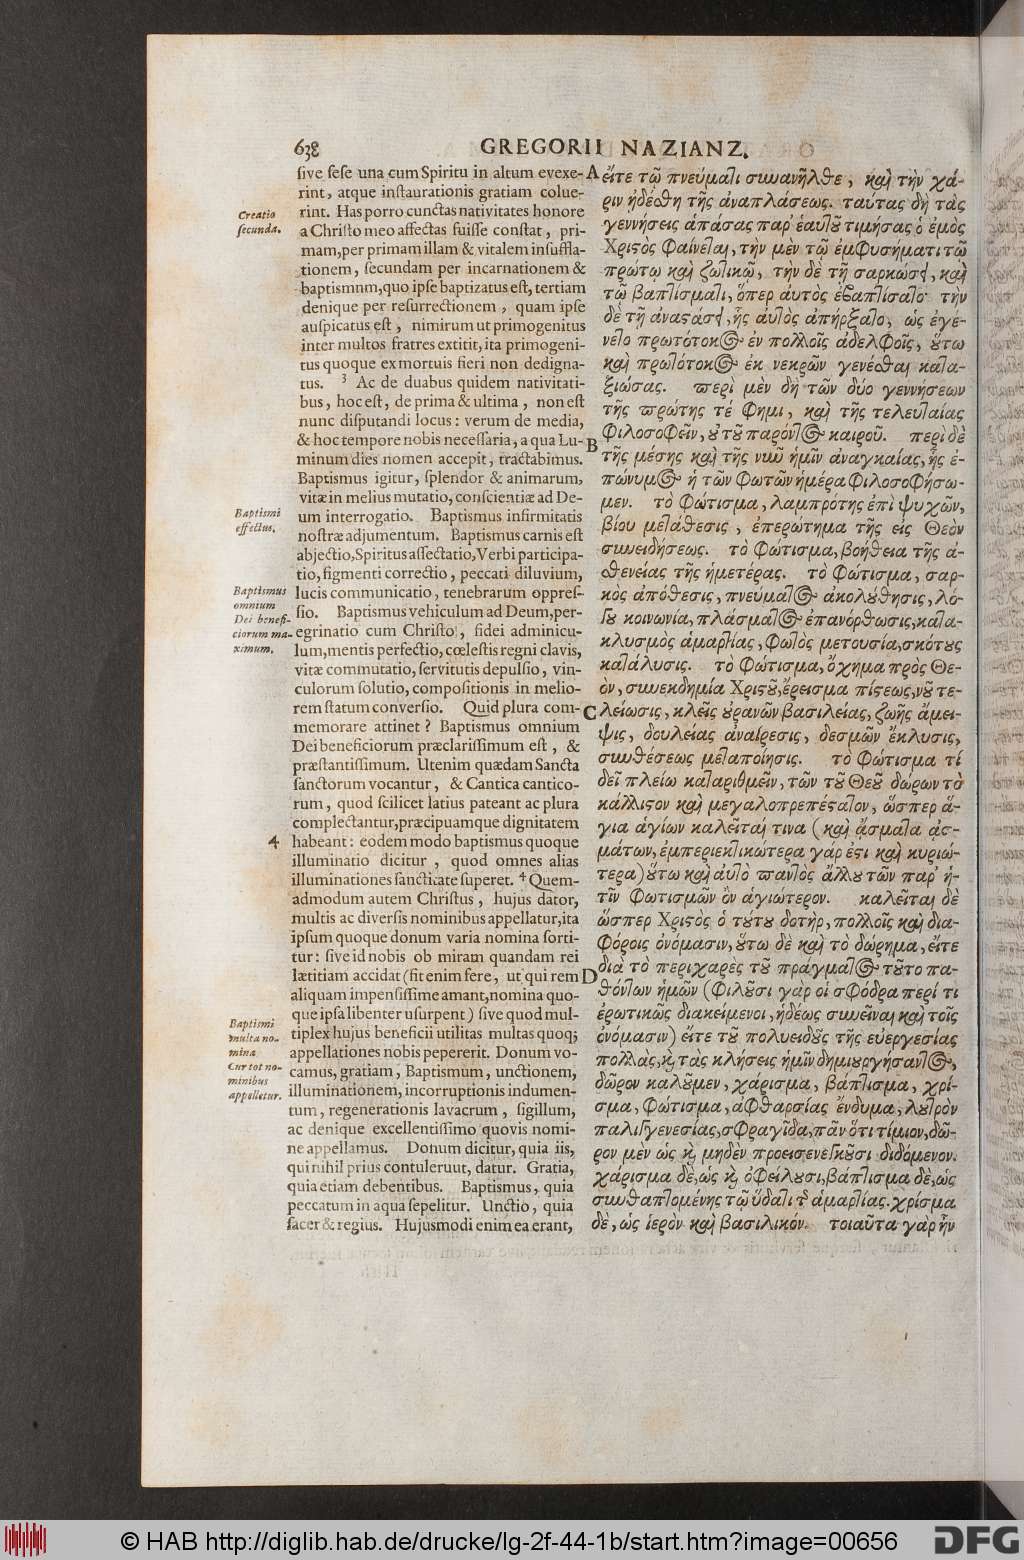 638
GREGORII NAZIANZ.
sive sese una cum Spiritu in altum evexe-
rint, atque instaurationis gratiam colue-
rint. Has porro cunctas nativitates honore
a Christo meo affectas fuisse constat, pri-
mam, per primam illam & vitalem insuffla-
tionem, secundam per incarnationem &
baptismnm, quo ipse baptizatus est, tertiam
denique per resurrectionem, quam ipse
auspicatus est, nimirum ut primogenitus
inter multos fratres extitit, ita primogeni-
tus quoque ex mortuis fieri non dedigna-
tus. 3 Ac de duabus quidem nativitati-
bus, hoc est, de prima & ultima, non est
nunc disputandi locus: verum de media,
& hoc tempore nobis necessaria, a qua Lu-
minum dies nomen accepit, tractabimus.
Baptismus igitur, splendor & animarum,
vitæ in melius mutatio, conscientiæ ad De-
um interrogatio. Baptismus infirmitatis
nostræ adjumentum. Baptismus carnis est
abjectio, Spiritus assectatio, Verbi participa-
tio, figmenti correctio, peccati diluvium,
lucis communicatio, tenebrarum oppres-
sio. Baptismus vehiculum ad Deum, per-
egrinatio cum Christo, fidei adminicu-
lum, mentis perfectio, cœlestis regni clavis,
vitæ commutatio, servitutis depulsio, vin-
culorum solutio, compositionis in melio-
rem statum conversio. Quid plura com-
memorare attinet? Baptismus omnium
Dei beneficiorum præclarissimum est, &
præstantissimum. Utenim quædam Sancta
sanctorum vocantur, & Cantica cantico-
rum, quod scilicet latius pateant ac plura
complectantur, præcipuamque dignitatem
habeant: eodem modo baptismus quoque
illuminatio dicitur, quod omnes alias
illuminationes sanctitate superet. 4 Quem-
admodum autem Christus, hujus dator,
multis ac diversis nominibus appellatur, ita
ipsum quoque donum varia nomina sorti-
tur: sive id nobis ob miram quandam rei
lætitiam accidat (fit enim fere, ut qui rem
aliquam impensissime amant, nomina quo-
que ipsa libenter usurpent) sive quod mul-
tiplex hujus beneficii utilitas multas quoq;
appellationes nobis pepererit. Donum vo-
camus, gratiam, Baptismum, unctionem,
illuminationem, incorruptionis indumen-
tum, regenerationis lavacrum, sigillum,
ac denique excellentissimo quovis nomi-
ne appellamus. Donum dicitur, quia iis,
qui nihil prius contuleruut, datur. Gratia,
quia etiam debentibus. Baptismus, quia
peccatum in aqua sepelitur. Unctio, quia
sacer & regius. Hujusmodi enim ea erant,
Creatio
secunda.
Baptismi
effectus.
Baptismus
omnium
Dei benefi-
ciorum ma-
ximum.
4
Baptismi
multa no-
mina
Cur tot no-
minibus
appelletur.
A
B
C
D
εἴτε τῷ πνεύματι συνανῆλθε, καὶ τὴν χά-
ριν ᾐδέσθη τῆς ἀναπλάσεως. ταύτας δὴ τὰς
γεννήσεις ἁπάσας παρ' ἑαυτοῦ τιμήσας ὁ ἐμὸς
Χριστὸς φαίνεται, τὴν μὲν τῷ ἐμφυσήματι τῷ
πρώτῳ καὶ ζωτικῷ, τὴν δὲ τῇ σαρκώσει, καὶ
τῷ βαπτίσματι, ὅπερ αὐτὸς ἐβαπτίσατο· τὴν
δὲ τῇ ἀναστάσει, ἧς αὐτὸς ἀπήρξατο, ὡς ἐγέ-
νετο πρωτότοκος ἐν πολλοῖς ἀδελφοῖς, οὕτω
καὶ πρωτότοκος ἐκ νεκρῶν γενέσθαι κατα-
ξιώσας. περὶ μὲν δὴ τῶν δύο γεννήσεων
τῆς πρώτης τέ φημι, καὶ τῆς τελευταίας
φιλοσοφεῖν, οὐ τοῦ παρόντος καιροῦ. περὶ δὲ
τῆς μέσης καὶ τῆς νῦν ἡμῖν ἀναγκαίας, ἧς ἐ-
πώνυμος ἡ τῶν φωτῶν ἡμέρα φιλοσοφήσω-
μεν. τὸ φώτισμα, λαμπρότης ἐπὶ ψυχῶν,
βίου μετάθεσις, ἐπερώτημα τῆς εἰς Θεὸν
συνειδήσεως. τὸ φώτισμα, βοήθεια τῆς ἀ-
σθενείας τῆς ἡμετέρας. τὸ φώτισμα, σαρ-
κὸς ἀπόθεσις, πνεύματος ἀκολούθησις, λό-
γου κοινωνία, πλάσματος ἐπανόρθωσις, κατα-
κλυσμὸς ἁμαρτίας, φωτὸς μετουσία, σκότους
κατάλυσις. τὸ φώτισμα, ὄχημα πρὸς Θε-
ὸν, συνεκδημία Χριστοῦ, ἔρεισμα πίστεως, νοῦ τε-
λείωσις, κλεῖς οὐρανῶν βασιλείας, ζωῆς ἄμει-
ψις, δουλείας ἀναίρεσις, δεσμῶν ἔκλυσις,
συνθέσεως μεταποίησις. τὸ φώτισμα τί
δεῖ πλείω καταριθμεῖν, τῶν τοῦ Θεοῦ δώρων τὸ
κάλλιστον καὶ μεγαλοπρεπέστατον, ὥσπερ ἅ-
για ἁγίων καλεῖταί τινα (καὶ ᾄσματα ᾀσ-
μάτων, ἐμπεριεκτικώτερα γάρ ἐστι καὶ κυριώ-
τερα) οὕτω καὶ αὐτὸ παντὸς ἄλλου τῶν παρ' ἡ-
μῖν φωτισμῶν ὂν ἁγιώτερον. καλεῖται δὲ
ὥσπερ Χριστὸς ὁ τούτου δοτὴρ, πολλοῖς καὶ δια-
φόροις ὀνόμασιν, οὕτω δὲ καὶ τὸ δώρημα, εἴτε
διὰ τὸ περιχαρὲς τοῦ πράγματος τοῦτο πα-
θόντων ἡμῶν (φιλοῦσι γὰρ οἱ σφόδρα περί τι
ἐρωτικῶς διακείμενοι, ἡδέως συνεῖναι καὶ τοῖς
ὀνόμασιν) εἴτε τοῦ πολυειδοῦς τῆς εὐεργεσίας
πολλὰς, καὶ τὰς κλήσεις ἡμῖν δημιουργήσαντος,
δῶρον καλοῦμεν, χάρισμα, βάπτισμα, χρί-
σμα, φώτισμα, ἀφθαρσίας ἔνδυμα, λουτρὸν
παλιγγενεσίας, σφραγῖδα, πᾶν ὅ τι τίμιον, δῶ-
ρον μὲν ὡς καὶ μηδὲν προεισενεγκοῦσι διδόμενον.
χάρισμα δὲ, ὡς καὶ ὀφείλουσι, βάπτισμα δὲ, ὡς
συνθαπτομένης τῷ ὕδατι τῆς ἁμαρτίας. χρίσμα
δὲ, ὡς ἱερὸν καὶ βασιλικόν. τοιαῦτα γὰρ ἦν
© HAB http://diglib.hab.de/drucke/lg-2f-44-1b/start.htm?image=00656
DFG